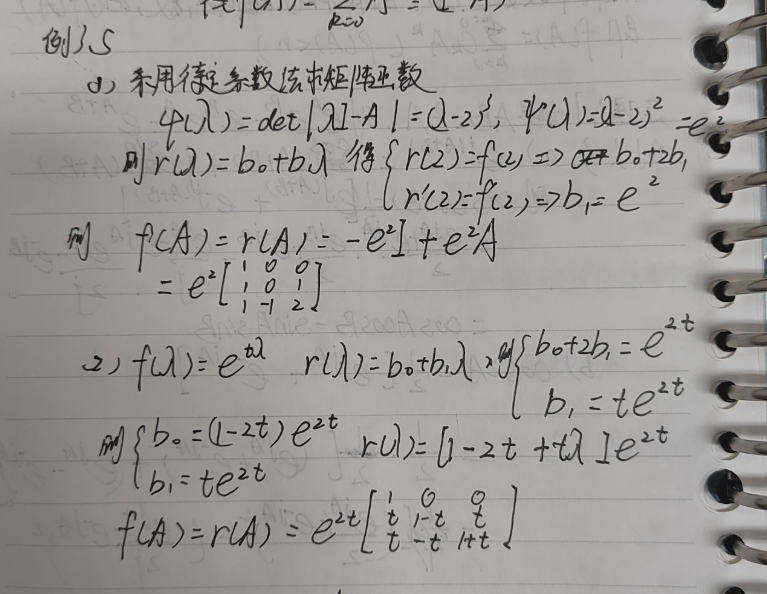 例3.5
(1) 采用待定系数法求矩阵函数
ψ(λ)=det|λI-A|=(λ-2)³, ψ(λ)=(λ-2)²
则r(λ)=b₀+b₁λ 得{r(2)=f(2)=>b₀+2b₁=e²
r'(2)=f'(2)=>b₁=e²
则 f(A)=r(A)=-e²I+e²A
=e²[1 0 0
1 0 1
1 -1 2]
2) f(λ)=e^{tλ} r(λ)=b₀+b₁λ, 则{b₀+2b₁=e^{2t}
b₁=te^{2t}
则{b₀=(1-2t)e^{2t} r(λ)=[1-2t+tλ]e^{2t}
b₁=te^{2t}
f(A)=r(A)=e^{2t}[1 0 0
t 1-t t
t -t 1+t]